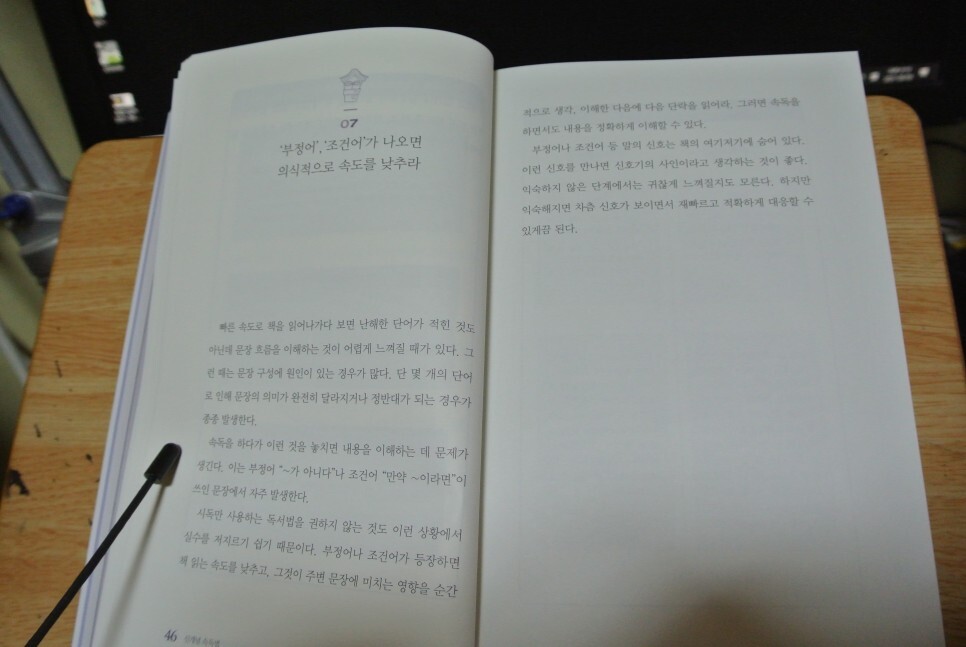 07
'부정어', '조건어'가 나오면
의식적으로 속도를 낮추라
빠른 속도로 책을 읽어나가다 보면 난해한 단어가 적힌 것도
아닌데 문장 흐름을 이해하는 것이 어렵게 느껴질 때가 있다. 그
런 때는 문장 구성에 원인이 있는 경우가 많다. 단 몇 개의 단어
로 인해 문장의 의미가 완전히 달라지거나 정반대가 되는 경우가
종종 발생한다.
속독을 하다가 이런 것을 놓치면 내용을 이해하는 데 문제가
생긴다. 이는 부정어 “~가 아니다”나 조건어 “만약 ~이라면”이
쓰인 문장에서 자주 발생한다.
시독만 사용하는 독서법을 권하지 않는 것도 이런 상황에서
실수를 저지르기 쉽기 때문이다. 부정어나 조건어가 등장하면
책 읽는 속도를 낮추고, 그것이 주변 문장에 미치는 영향을 순간
46
적으로 생각, 이해한 다음에 다음 단락을 읽어라. 그러면 속독을
하면서도 내용을 정확하게 이해할 수 있다.
부정어나 조건어 등 말의 신호는 책의 여기저기에 숨어 있다.
이런 신호를 만나면 신호기의 사인이라고 생각하는 것이 좋다.
익숙하지 않은 단계에서는 귀찮게 느껴질지도 모른다. 하지만
익숙해지면 차츰 신호가 보이면서 재빠르고 적확하게 대응할 수
있게끔 된다.